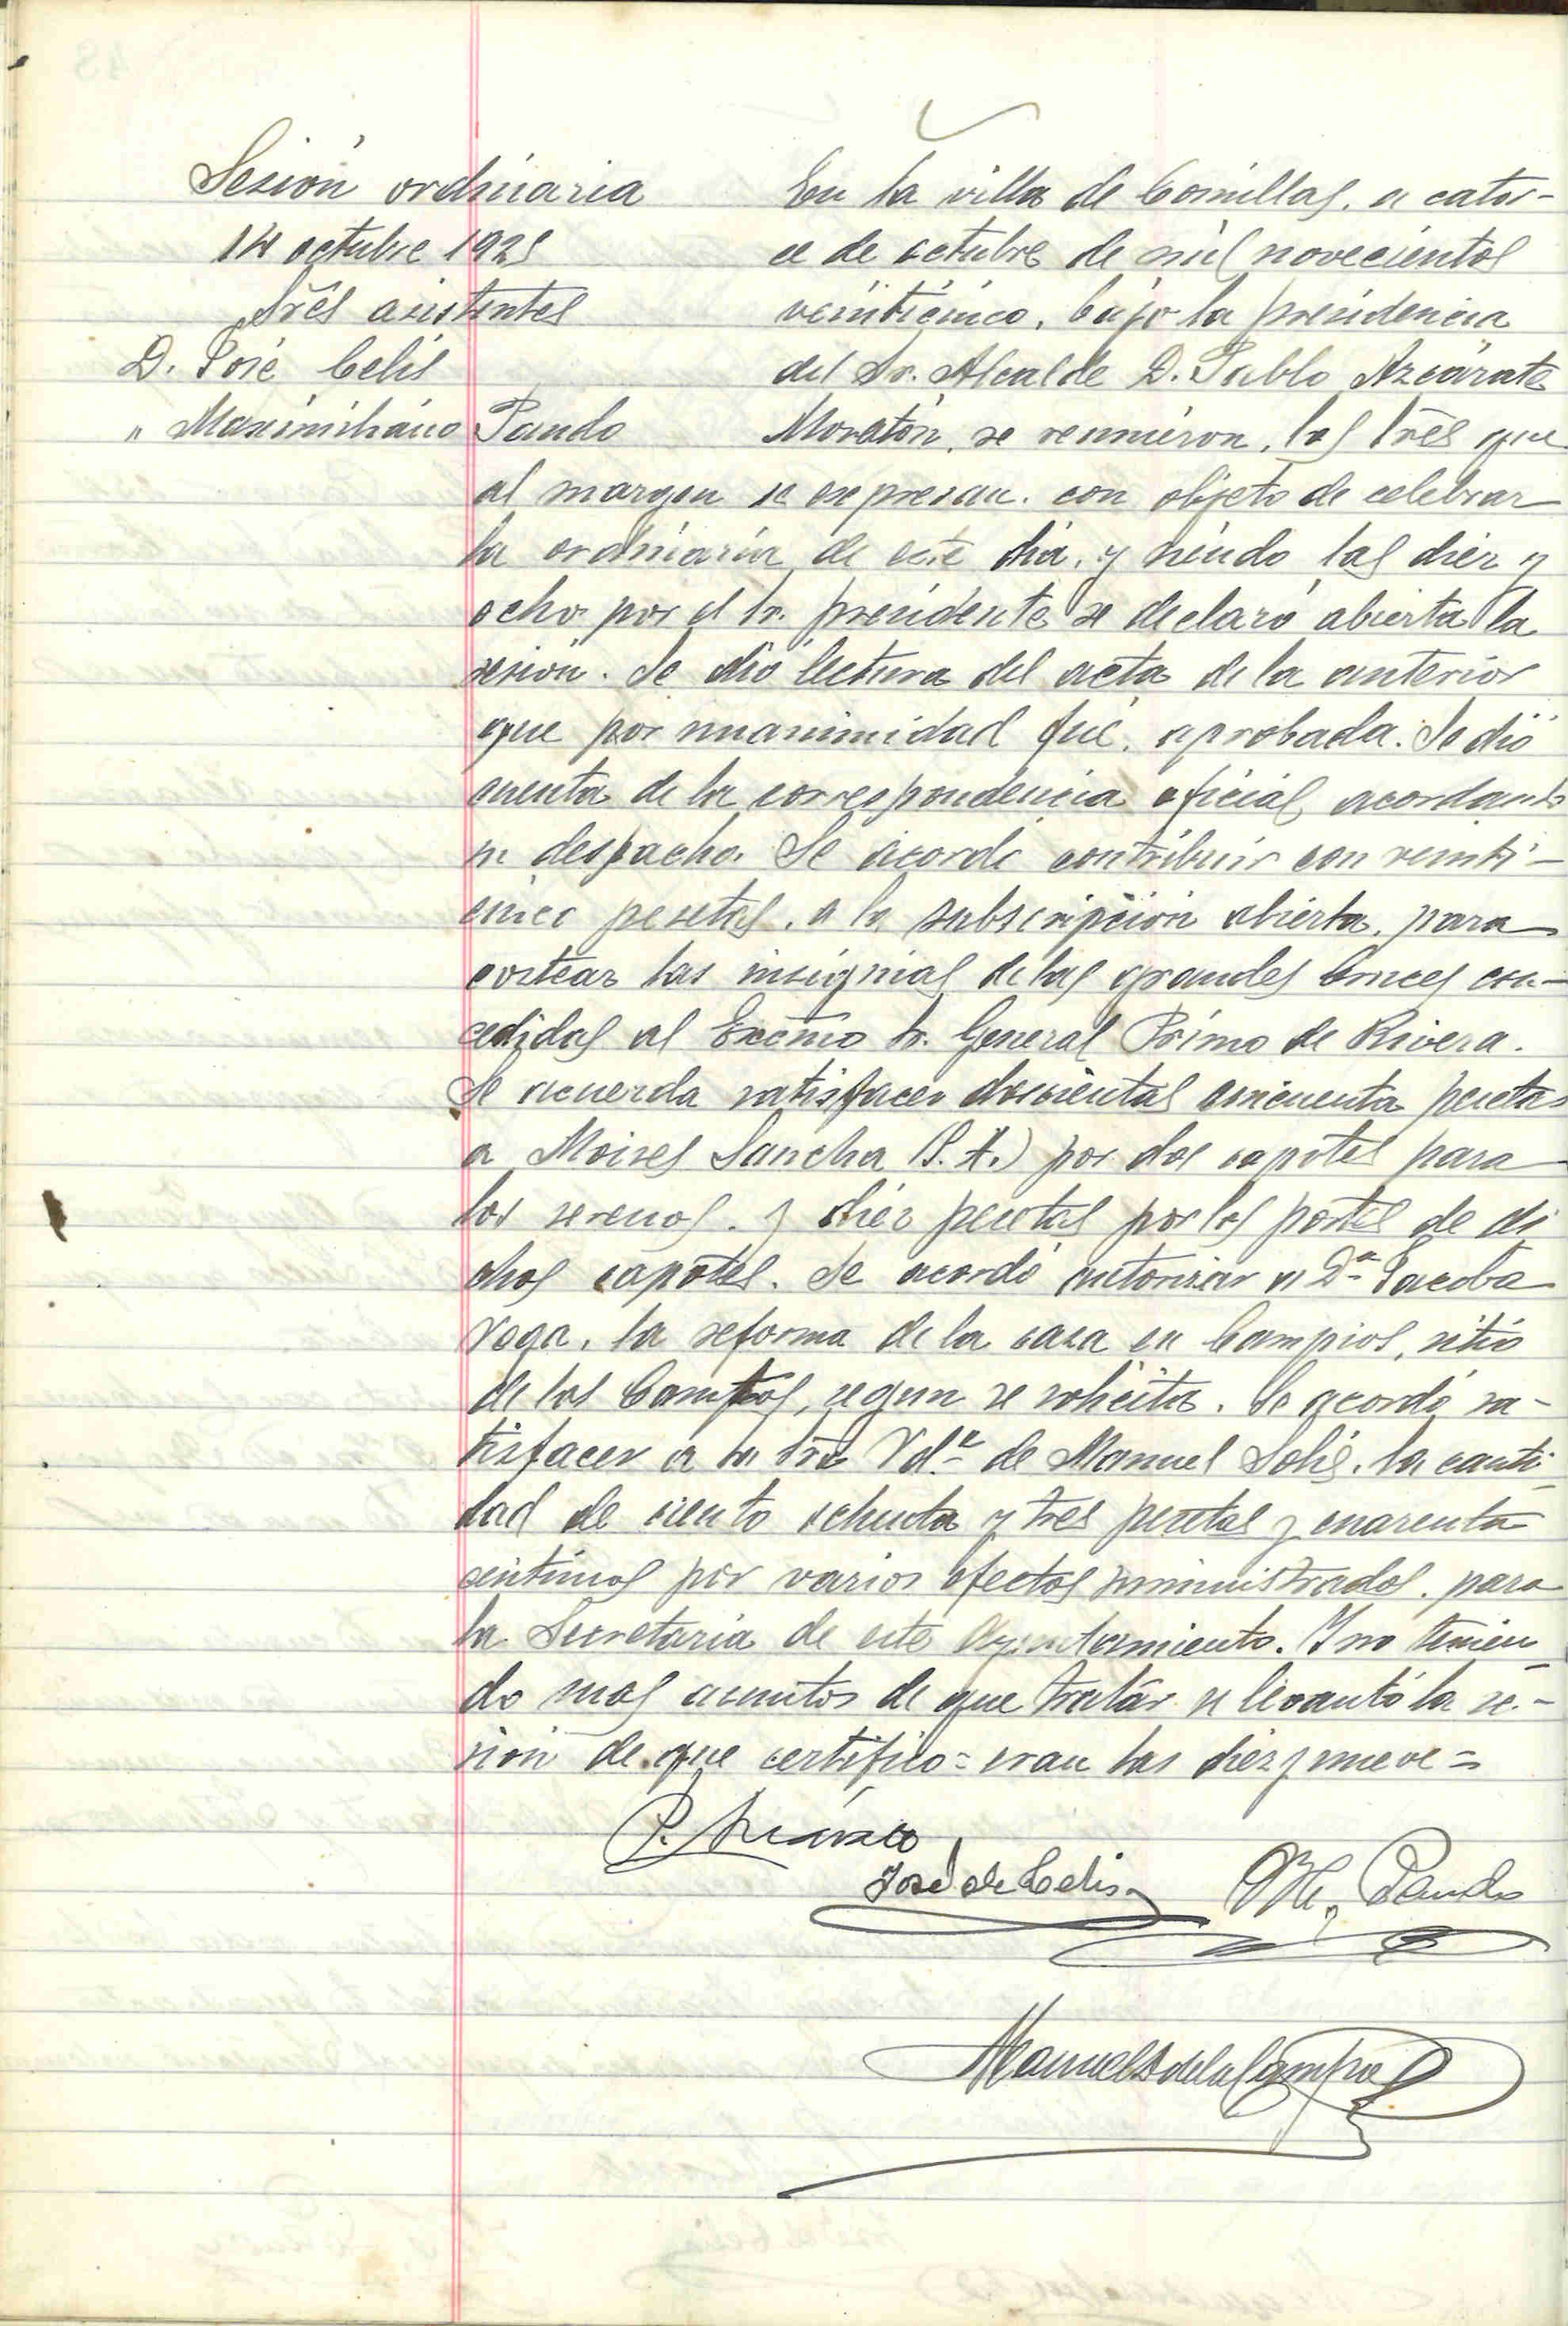 Sesión ordinaria
14 octubre 1925
Srēs asistentes
D. José Celis
" Maximiliano Pando
En la villa de Comillas, a cator-
ce de octubre de mil novecientos
veinticinco, bajo la presidencia
del Sr. Alcalde D. Pablo Azcárate
Moratón, se reunieron, los Srēs que
al margen se expresan, con objeto de celebrar
la ordinaria de este dia, y siendo las diez y
ocho por el Sr. presidente se declaró abierta la
sesión. Se dió lectura del acta de la anterior
que por unanimidad fué, aprobada. Se dió
cuenta de la correspondencia oficial acordando
su despacho. Se acordó contribuir con veinti-
cinco pesetas, a la subscripción abierta, para
costear las insignias de las grandes Cruces con-
cedidas al Excmo Sr. General Primo de Rivera.
Se acuerda satisfacer doscientas cincuenta pesetas
a Moises Sancha (S. A.) por dos capotes para
los serenos, y diez pesetas por los portes de di
chos capotes. Se acordó autorizar a Dª Jacoba
Vega, la reforma de la casa en Campios, sitio
de los Campos, segun se solicita. Se acordó sa-
tisfacer a la Sra Vdª de Manuel Solis, la canti-
dad de ciento ochenta y tres pesetas y cuarenta
centimos por varios efectos suministrados, para
la Secretaria de este Ayuntamiento. Y no tenien-
do mas asuntos de que tratar se levantó la se-
sion de que certifico = eran las diez y nueve =
P. Azcárate
José de Celis
M. Pando
Manuel de la Campa